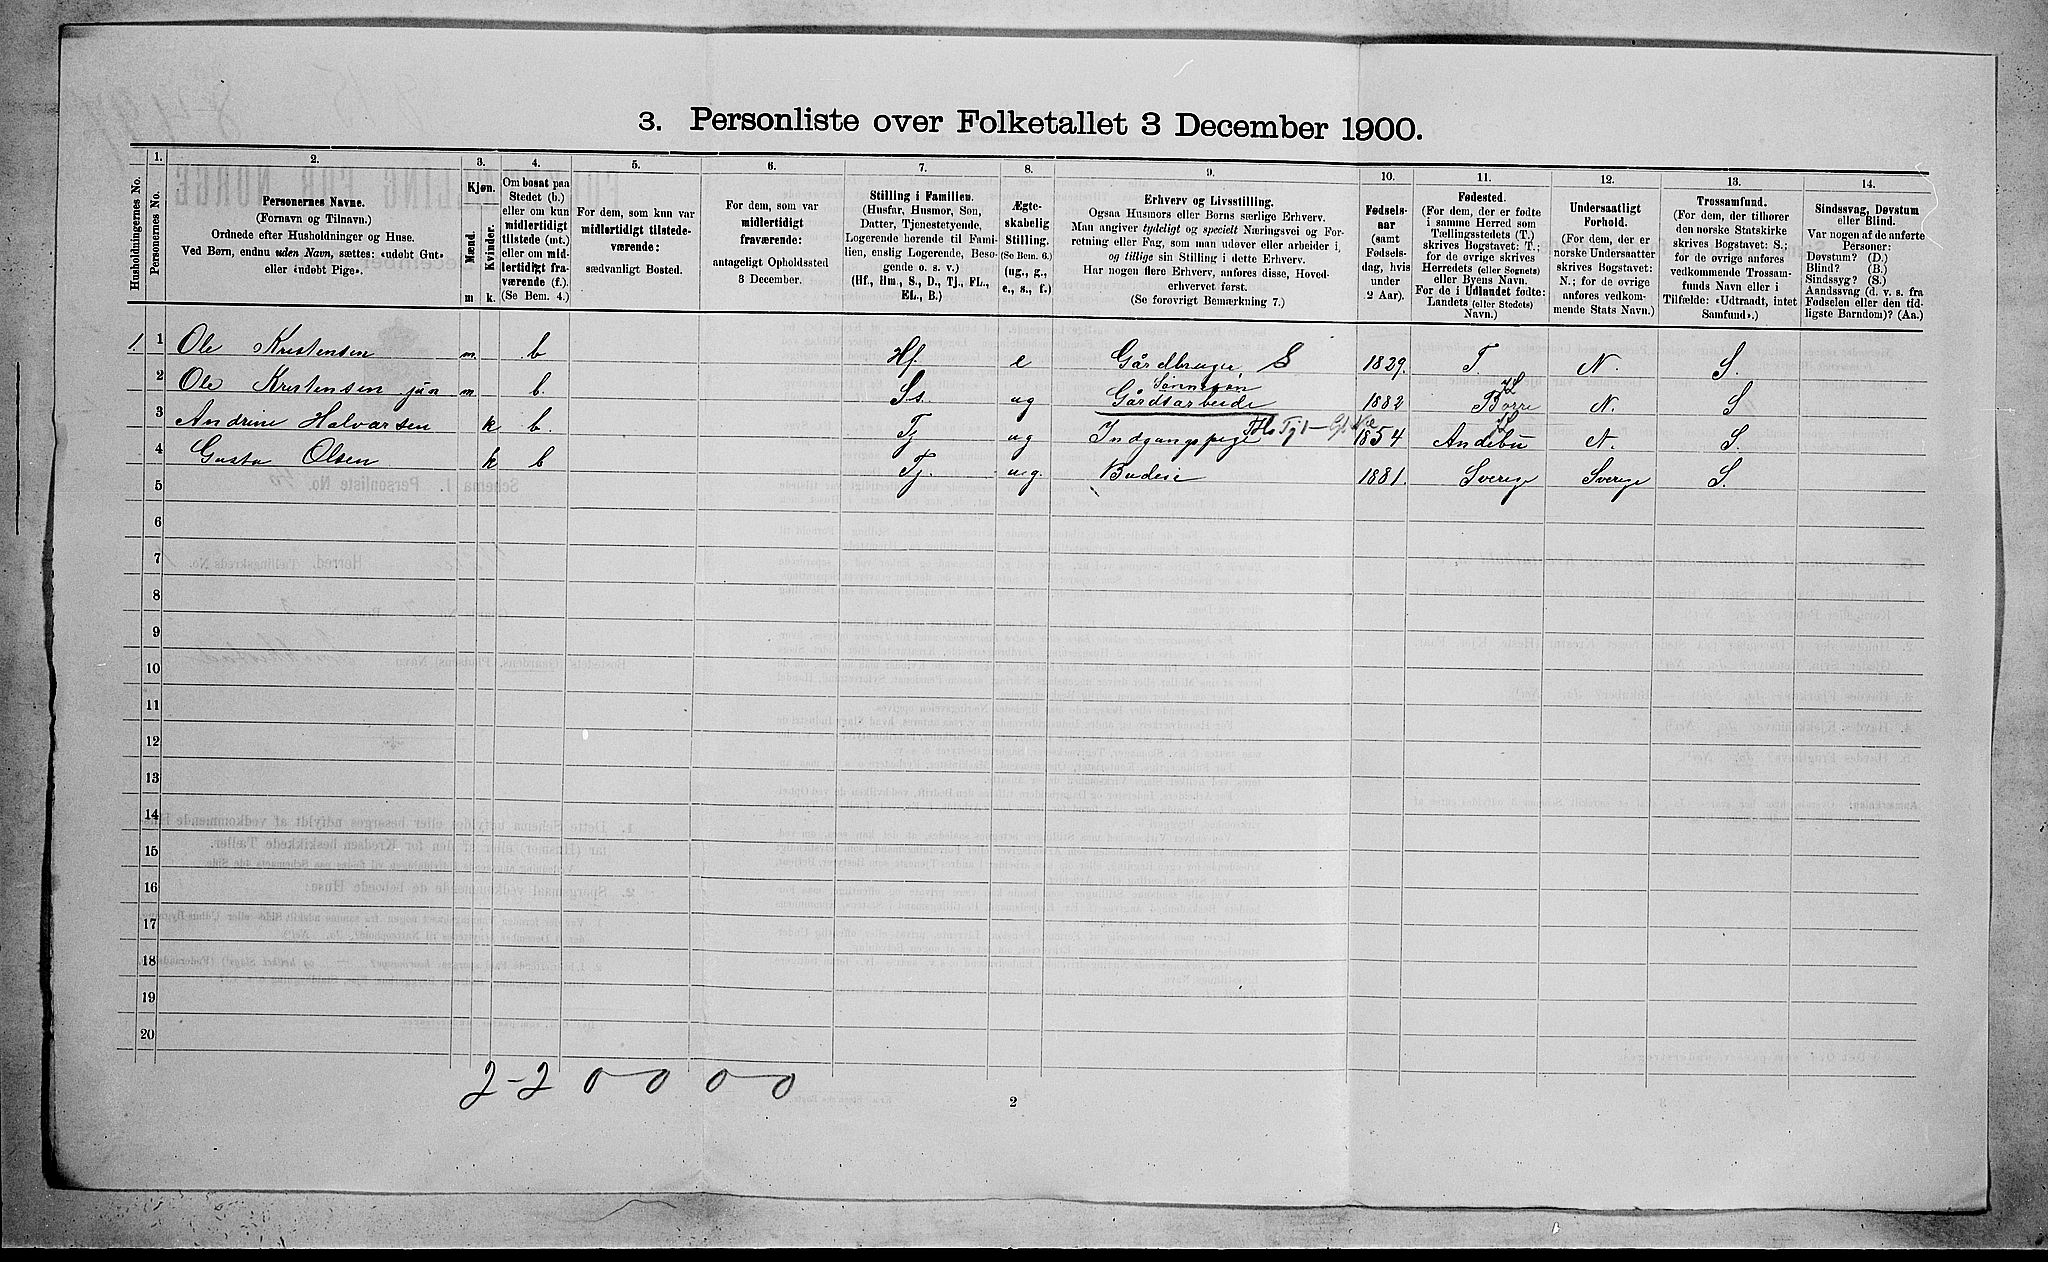 3. Personliste over Folketallet 3 December 1900.
Husholdningernes No.
1.
Personernes No.
2.
Personernes Navne.
(Fornavn og Tilnavn.)
Ordnede efter Husholdninger og Huse.
Ved Børn, endnu uden Navn, sættes: «udøbt Gut»
eller «udøbt Pige».
3.
Kjøn.
Mænd.
Kvinder.
m
k.
4.
Om bosat paa
Stedet (b.)
eller om kun
midlertidigt
tilstede (mt.)
eller om mid-
lertidigt fra-
værende (f.).
(Se Bem. 4.)
5.
For dem, som kun var
midlertidigt tilstede-
værende:
sædvanligt Bosted.
6.
For dem, som var
midlertidigt
fraværende:
antageligt Opholdssted
3 December.
7.
Stilling i Familien.
(Husfar, Husmor, Søn,
Datter, Tjenestetyende,
Logerende hørende til Fami-
lien, enslig Logerende, Beso-
gende o. s. v.)
(Hf., Hm., S., D., Tj., FL.,
EL., B.)
8.
Ægte-
skabelig
Stilling.
(Se Bem. 6.)
(ug., g.,
e., s., f.)
9.
Erhverv og Livsstilling.
Ogsaa Husmors eller Børns særlige Erhverv.
Man angiver tydeligt og specielt Næringsvei og For-
retning eller Fag, som man udøver eller arbeider i,
og tillige sin Stilling i dette Erhverv.
Har nogen flere Erhverv, anføres disse, Hoved-
erhvervet først.
(Se forøvrigt Bemærkning 7.)
10.
Fødsels-
aar
(samt
Fødsels-
dag, hvis
under
2 Aar).
11.
Fødested.
(For dem, der er fødte
i samme Herred som
Tællingsstedets (T.)
skrives Bogstavet: T.;
for de øvrige skrives
Herredets (eller Sognets)
eller Byens Navn.
For de i Udlandet fødte:
Landets (eller Stedets)
Navn.)
12.
Undersaatligt
Forhold.
(For dem, der er
norske Undersaatter
skrives Bogstavet:
N.; for de øvrige
anføres vedkom-
mende Stats Navn.)
13.
Trossamfund.
(For dem, der tilhører
den norske Statskirke
skrives Bogstavet: S.;
for de øvrige anføres
vedkommende Trossam-
funds Navn eller i
Tilfælde: «Udtraadt, intet
Samfund».)
14.
Sindssvag, Døvstum
eller Blind.
Var nogen af de anførte
Personer:
Døvstum? (D.)
Blind? (B.)
Sindssyg? (S.)
Aandssvag (d. v. s. fra
Fødselen eller den tid-
ligste Barndom)? (Aa.)
1. 1 Ole Kristensen m b Hf. e Gårdbruger S 1829. T. N. S.
2 Ole Kristensen jun m b. Ss. ug Sønnesøn Gårdsarbeide 1882 Borre N. S
3 Andrine Halvarsen k b. Tj ug Indgangspige 1854 Andebu N. S.
4 Gusta Olsen k b Tj. ug. Budeie 1881. Sverige Sverige S.
5
6
7
8
9
10
11
12
13
14
15
16
17
18
19
20
2-2 0 0 0 0
2